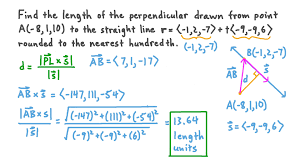 Find the length of the perpendicular drawn from point
A(-8,1,10) to the straight line r=⟨-1,2,-7⟩+t⟨-9,-9,6⟩
rounded to the nearest hundredth.
⟨-1,2,-7⟩
B(-1,2,-7)
d = |PL × s| / |s|
AB = ⟨7,1,-17⟩
s
AB
d
AB × s = ⟨-147,111,-54⟩
A(-8,1,10)
|AB × s| / |s| = √((-147)²+(111)²+(-54)²) / √((-9)²+(-9)²+(6)²) = 13.64 length units
s = ⟨-9,-9,6⟩